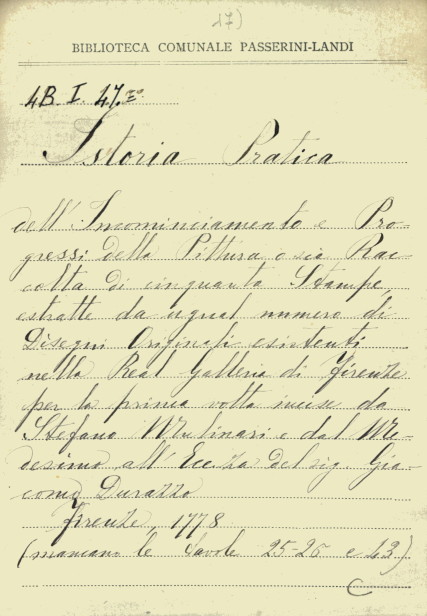 17)
BIBLIOTECA COMUNALE PASSERINI-LANDI
4B. I. 47.
Istoria Pratica
dell' Incominciamento e Pro-
gressi della Pittura o sia Rac-
colta di cinquanta Stampe
estratte da ugual numero di
Disegni Originali esistenti
nella Real Galleria di Firenze
per la prima volta incise da
Stefano Mulinari e dal Me-
desimo all' Ecc.za del sig. Gia-
como Durazzo
Firenze, 1778
(mancano le tavole 25-26 e 43)